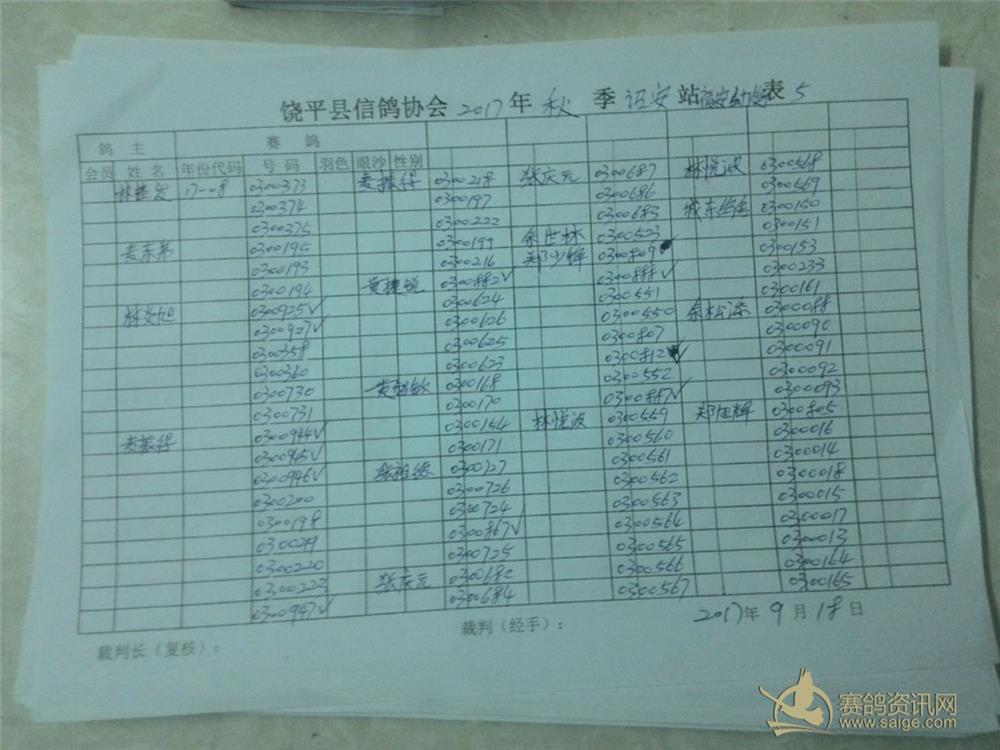 饶平县信鸽协会 2017 年 秋 季 诏安 站 表 5
鸽 主 赛 鸽
会员 姓 名 年份代码 号 码 羽色 眼沙 性别
17-08 0300373 麦振锋 0300218 张庆元 0300687 林悦波 0300568
0300374 0300197 0300686 0300569
0300375 0300222 0300683 0300150
麦东弟 0300195 0300199 余世林 0300523 0300151
0300193 0300216 郑少锋 0300809 0300153
0300194 黄捷锐 0300882✓ 0300888✓ 0300233
0300925✓ 0300624 0300551 0300161
0300927✓ 0300626 0300550 余松深 0300088
0300358 0300625 0300807 0300090
0300360 0300623 0300812✓ 0300091
0300730 0300168 0300552 0300092
0300731 0300170 0300887✓ 0300093
麦振锋 0300944✓ 0300154 林悦波 0300559 郑旭辉 0300805
0300945✓ 0300171 0300560 0300016
0300946✓ 0300727 0300561 0300014
0300200 0300726 0300562 0300018
0300198 0300724 0300563 0300015
0300219 0300867✓ 0300564 0300017
0300220 0300725 0300565 0300013
0300222 张庆元 0300682 0300566 0300164
0300947✓ 0300684 0300567 0300165
裁判长（复核）： 裁判（经手）： 2017年 9 月 18 日
赛鸽资讯网
www.saige.com